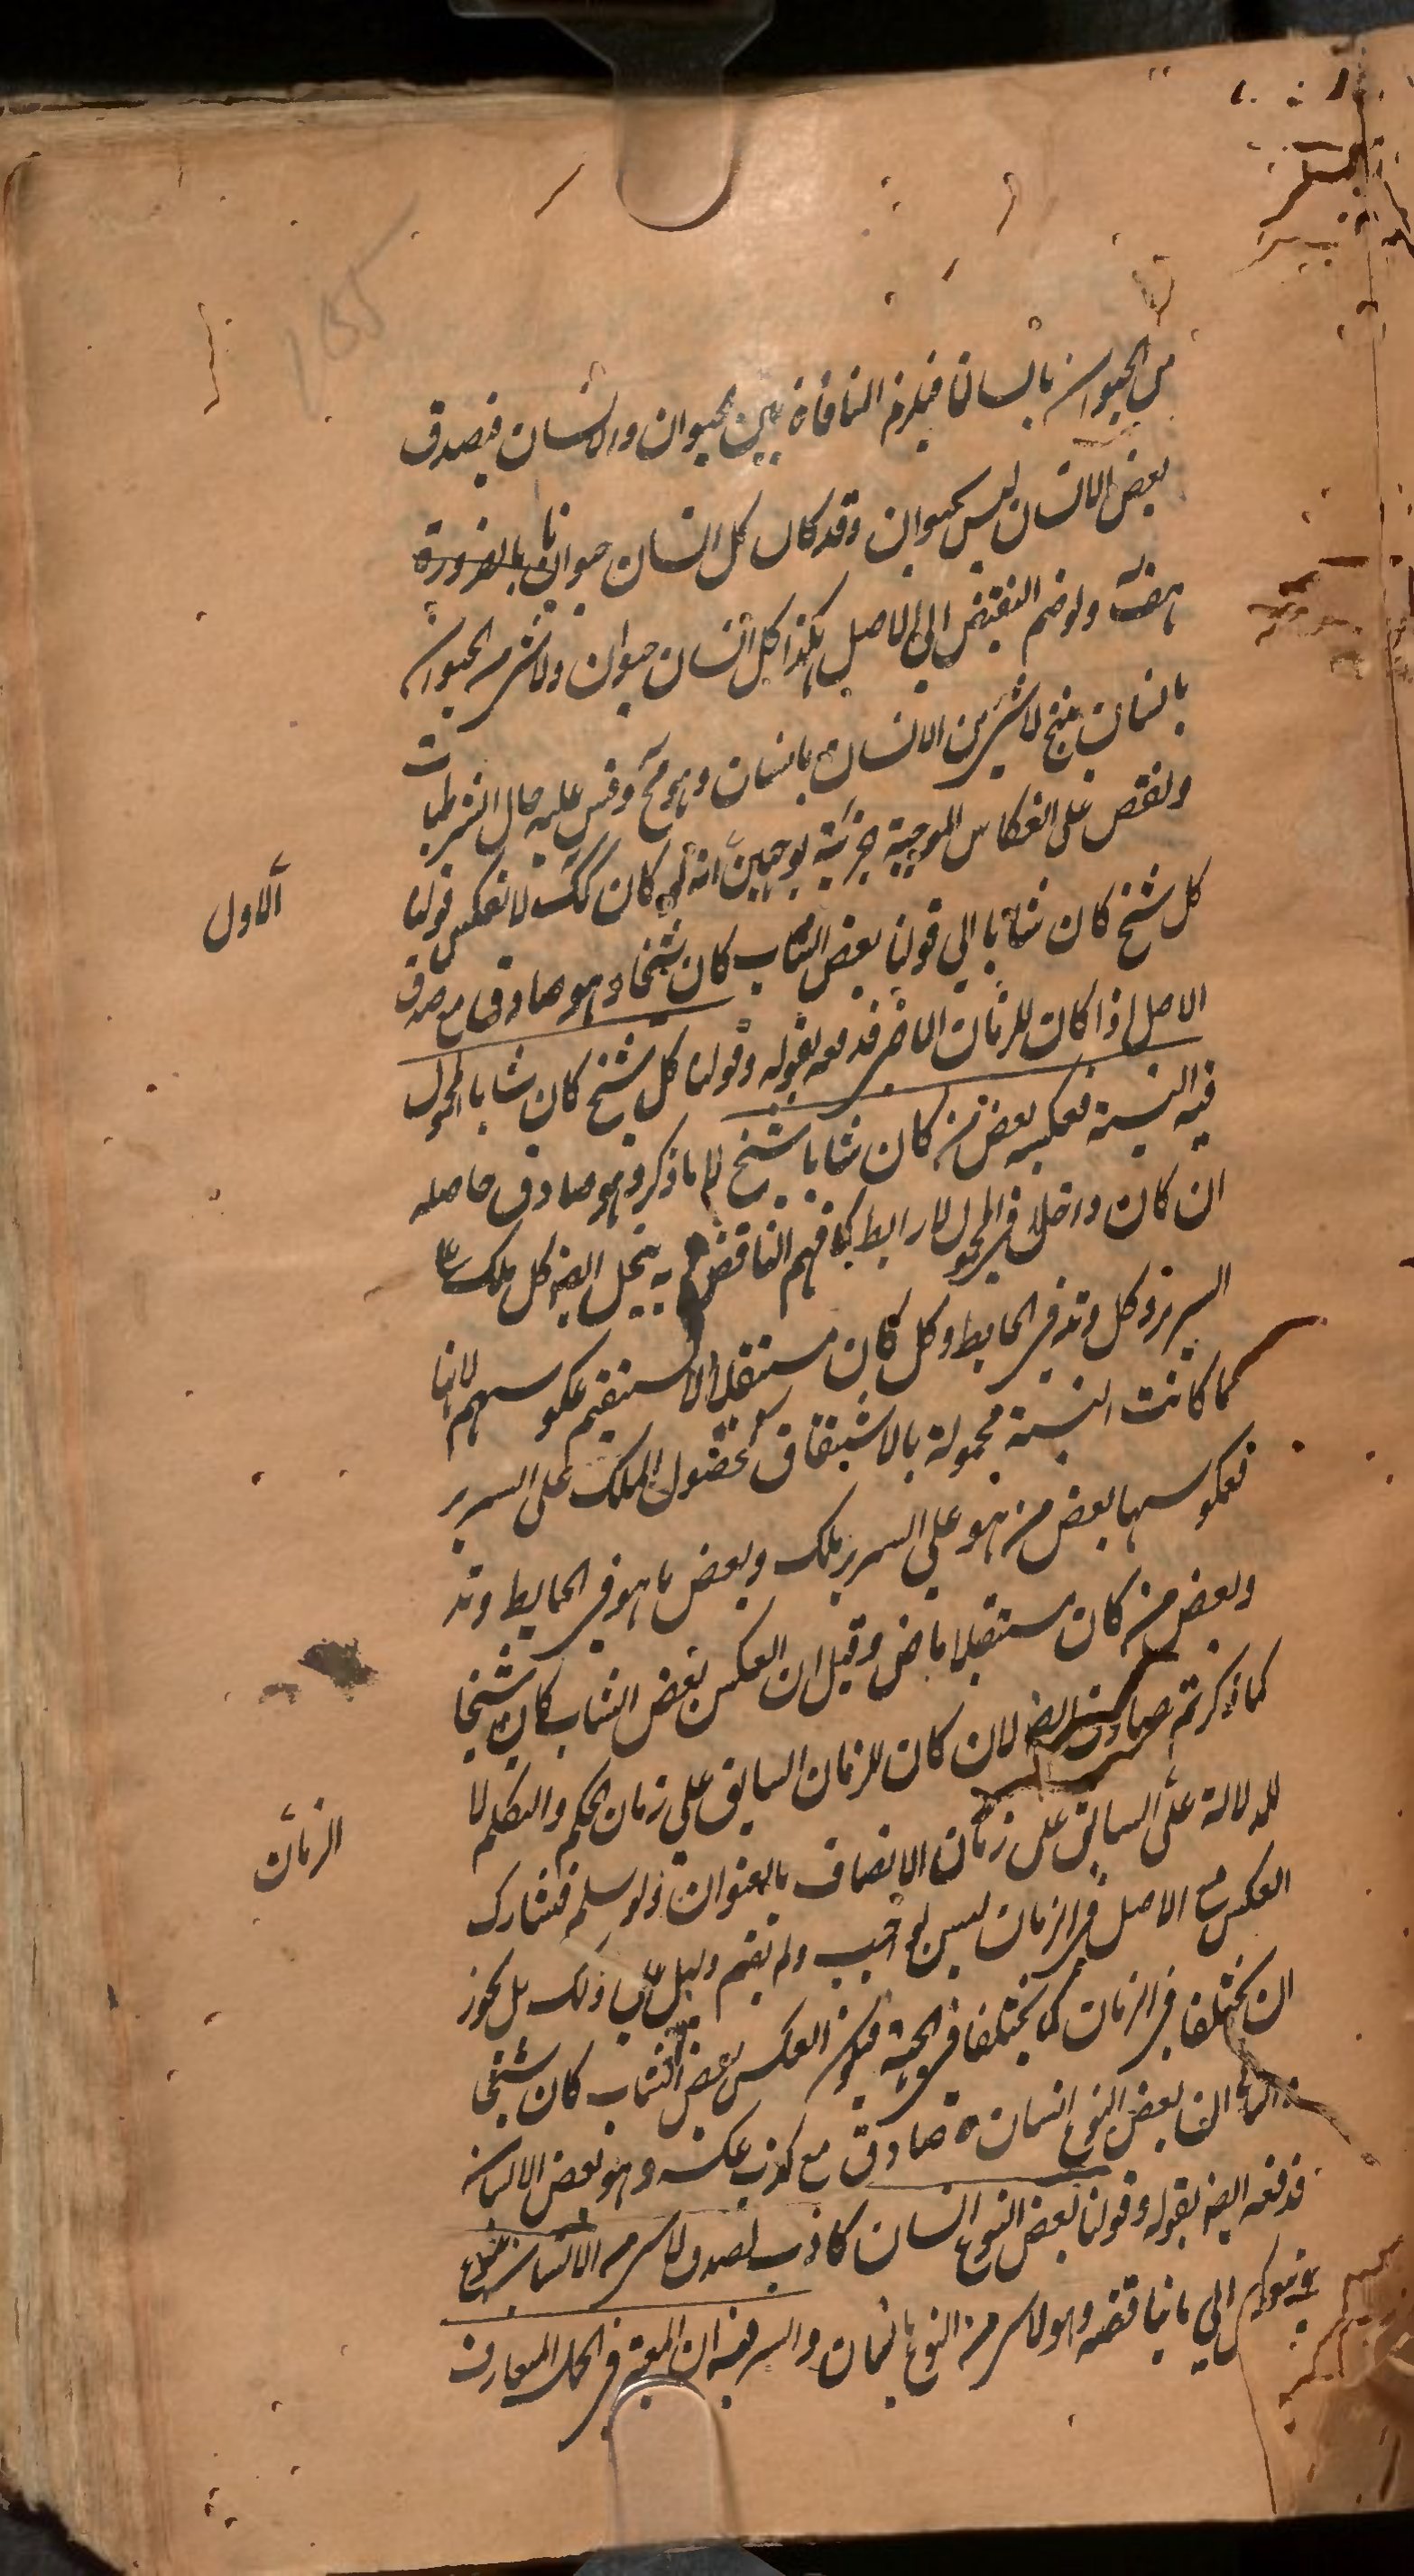 من الحيوان بانسان فيلزم المنافاة بين الحيوان والانسان فيصدق
بعض الانسان ليس بحيوان وقد كان كل انسان حيوانا بالضرورة
هف ولو ضم النقيض الى الاصل هكذا كل انسان حيوان ولا شئ من الحيوان
بانسان ينتج لا شئ من الانسان بانسان وهو مح وقس عليه حال الشرطيات
ونقض على انعكاس الموجبة جزئية بوجهين انه لو كان كك لانعكس قولنا
الاول
كل شيخ كان شابا الى قولنا بعض الشاب كان شيخا وهو صادق مع صدق
الاصل اذا كان للزمان الماضي فدفعه بقوله وقولنا كل شيخ كان شابا المحمول
فيه النسبة فعكسه بعض من كان شابا شيخ لا ما ذكر وهو صادق حاصله
ان كان داخلا في المحمول لا رابط كما فهم الناقض به ينحل ايضا كل ملك على
السرير وكل وتد في الحايط وكل كان مستقبلا لا يستقيم عكوسهم لانها
لما كانت النسبة محمولة بالاشتقاق كحصول الملك على السرير
فعكوسها بعض من هو على السرير ملك وبعض ما هو في الحايط وتد
وبعض من كان مستقبلا ماض وقيل ان العكس بعض الشاب كان شيخا
كما ذكرتم صادق ايضا لان كان للزمان السابق على زمان الحكم والتكلم لا
للدلالة على السابق على زمان الاتصاف بالعنوان ولو سلم فتشارك
الزمان
العكس مع الاصل في الزمان ليس بواجب ولم يقم دليل على ذلك بل يجوز
ان يختلفا في الزمان كما يختلفا في الجهة فيكون العكس بعض الشاب كان شيخا
الثاني ان بعض النوع انسان صادق مع كذب عكسه وهو بعض الانسان
فدفعه ايضا بقوله وقولنا بعض النوع انسان كاذب لصدق لا شئ من الانسان بنوع
الى ما يناقضه وهو لا شئ من النوع بانسان والسر فيه ان المعتبر في الحمل المتعارف